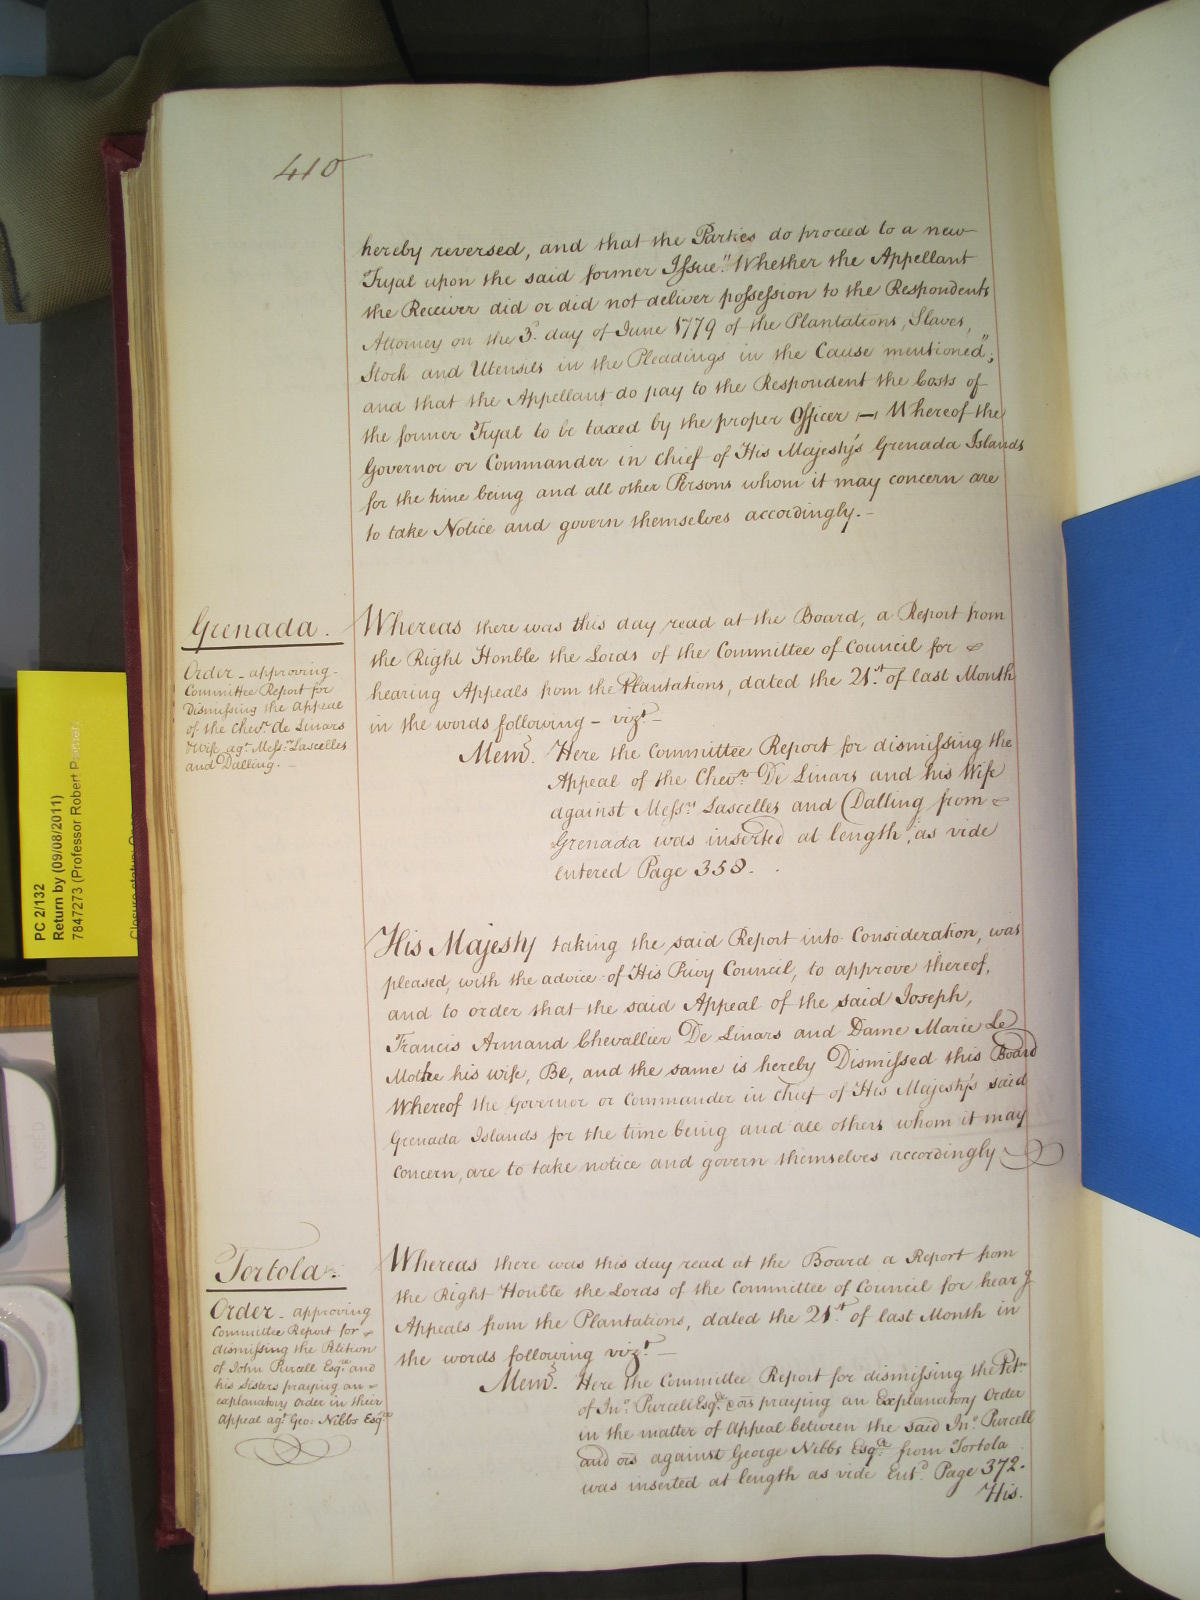 410
hereby reversed, and that the Parties do proceed to a new
Tryal upon the said former Issue "Whether the Appellant
the Receiver did or did not deliver possession to the Respondents
Attorney on the 3d. day of June 1779 of the Plantations, Slaves,
Stock and Utensils in the Pleadings in the Cause mentioned";
and that the Appellant do pay to the Respondent the Costs of
the former Tryal to be taxed by the proper Officer — Whereof the
Governor or Commander in chief of His Majesty's Grenada Islands
for the time being and all other Persons whom it may concern are
to take Notice and govern themselves accordingly. -
Grenada.
Order - approving
Committee Report for
Dismissing the Appeal
of the Chevr. de Linars
& Wife agt. Messrs. Lascelles
and Dalling. -
Whereas there was this day read at the Board, a Report from
the Right Honble the Lords of the Committee of Council for
hearing Appeals from the Plantations, dated the 21st. of last Month
in the words following - vizt. -
Memd. Here the Committee Report for dismissing the
Appeal of the Chevr. De Linars and his Wife
against Messrs. Lascelles and Dalling from
Grenada was inserted at length, as vide
entered Page 358.
His Majesty taking the said Report into Consideration, was
pleased, with the advice of His Privy Council, to approve thereof,
and to order that the said Appeal of the said Joseph,
Francis Armand Chevallier De Linars and Dame Marie Le
Mothe his wife, Be, and the same is hereby Dismissed this Board
Whereof the Governor or Commander in chief of His Majesty's said
Grenada Islands for the time being and all others whom it may
Concern, are to take notice and govern themselves accordingly
Tortola.
Order - approving
Committee Report for
dismissing the Petition
of John Purcell Esqre. and
his Sisters praying an
explanatory order in their
Appeal agt. Geo: Nibbs Esqre
Whereas there was this day read at the Board a Report from
the Right Honble the Lords of the Committee of Council for hearg
Appeals from the Plantations, dated the 21st. of last Month in
the words following vizt. -
Memd. Here the Committee Report for dismissing the Petn.
of Jno. Purcell Esqre. & ors praying an Explanatory Order
in the matter of Appeal between the said Jno. Purcell
and ors against George Nibbs Esqre. from Tortola
was inserted at length as vide Entd. Page 372.
His.
PC 2/132
Return by (09/08/2011)
7847273 (Professor Robert